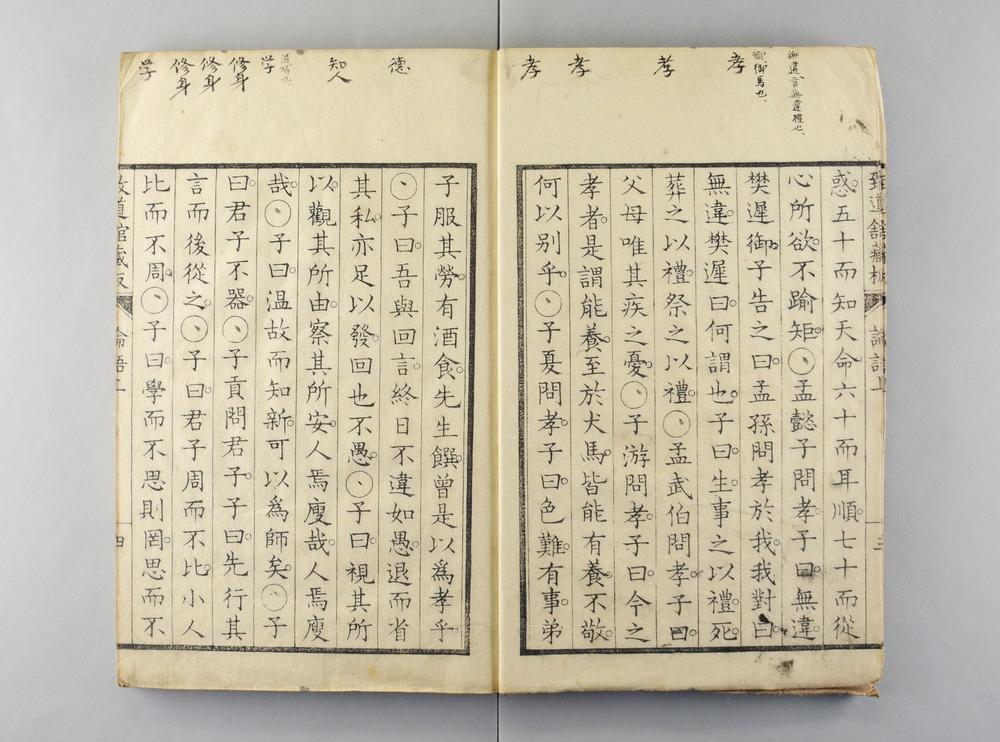 無違言無違禮也、
御御馬也、
孝
孝
孝
孝
致道館藏板 論語上 三
惑。五十而知天命六十而耳順。七十而從
心所欲。不踰矩。○孟懿子問孝。子曰。無違。
樊遲御。子告之曰。孟孫問孝於我。我對曰。
無違。樊遲曰。何謂也。子曰。生。事之以禮。死。
葬之以禮。祭之以禮。○孟武伯問孝。子曰。
父母唯其疾之憂。○子游問孝。子曰。今之
孝者。是謂能養。至於犬馬。皆能有養。不敬。
何以別乎。○子夏問孝。子曰。色難。有事。弟
德
知人
学
修身
修身
修身
学
子服其勞。有酒食。先生饌。曾是以爲孝乎
○子曰。吾與回言。終日不違如愚。退而省
其私。亦足以發。回也不愚。○子曰。視其所
以。觀其所由。察其所安。人焉廋哉。人焉廋
哉。○子曰。温故而知新。可以爲師矣。○子
曰。君子不器。○子貢問君子。子曰。先行其
言而後從之。○子曰。君子周而不比。小人
比而不周。○子曰。學而不思則罔。思而不
致道館藏板 論語上 四